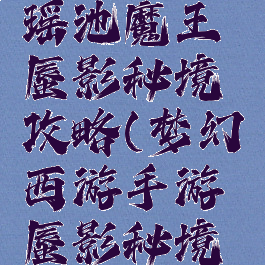 瑶池魔王
蜃影秘境
攻略(梦幻
西游手游
蜃影秘境